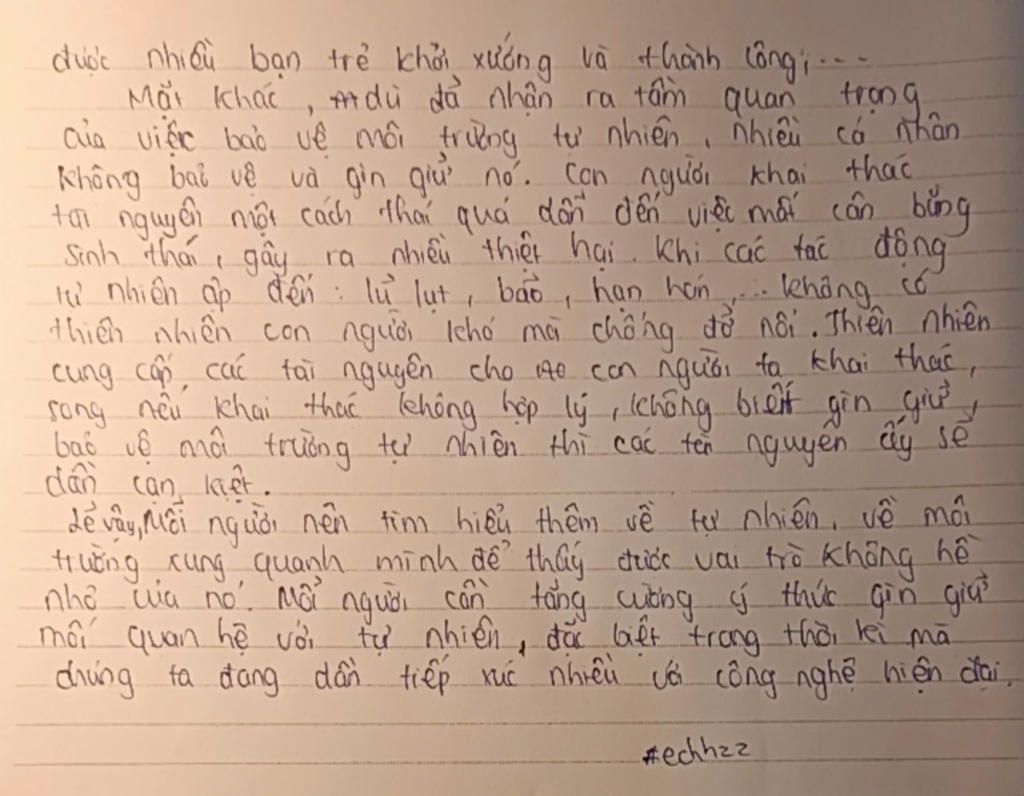 được nhiều bạn trẻ khởi xướng và thành công;...
Mặt khác, dù đã nhận ra tầm quan trọng
của việc bảo vệ môi trường tự nhiên, nhiều cá nhân
không bảo vệ và gìn giữ nó. Con người khai thác
tài nguyên một cách thái quá dẫn đến việc mất cân bằng
sinh thái, gây ra nhiều thiệt hại. Khi các tác động
tự nhiên ập đến: lũ lụt, bão, hạn hán,... không có
thiên nhiên con người khó mà chống đỡ nổi. Thiên nhiên
cung cấp các tài nguyên cho con người ta khai thác,
song nếu khai thác không hợp lý, không biết gìn giữ,
bảo vệ môi trường tự nhiên thì các tài nguyên ấy sẽ
dần cạn kiệt.
Để vậy, mỗi người nên tìm hiểu thêm về tự nhiên, về môi
trường xung quanh mình để thấy được vai trò không hề
nhỏ của nó. Mỗi người cần tăng cường ý thức gìn giữ
mối quan hệ với tự nhiên, đặc biệt trong thời kì mà
chúng ta đang dần tiếp xúc nhiều với công nghệ hiện đại.
#echhzz